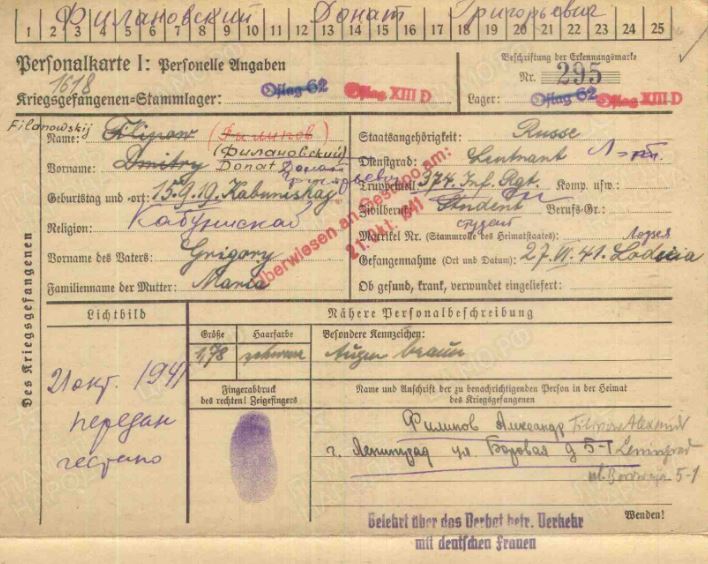 Филановский Донат Григорьевич
1 2 3 4 5 6 7 8 9 10 11 12 13 14 15 16 17 18 19 20 21 22 23 24 25
Personalkarte I: Personelle Angaben
1618
Kriegsgefangenen=Stammlager: Oflag 62 Oflag XIII D
Beschriftung der Erkennungsmarke
Nr. 295
Lager: Oflag 62 Oflag XIII D
Des Kriegsgefangenen
Filanowskij
Name: Filipow (Филипов)
(Филановский)
Vorname: Dmitry Donat Донат
Григорьевич
Geburtstag und =ort: 15.9.19.
Religion:
Vorname des Vaters: Grigory
Familienname der Mutter: Maria
Überwiesen an Gestapo am:
21. Okt. 1941
Staatsangehörigkeit: Russe
Dienstgrad: Leutnant
Truppenteil: 374. Inf. Rgt. Komp. usw.:
Zivilberuf: Student Berufs=Gr.:
студент
Matrikel Nr. (Stammrolle des Heimatstaates):
Gefangennahme (Ort und Datum): 27.VI.41.
Ob gesund, krank, verwundet eingeliefert:
Lichtbild
21 окт. 1941
передан
гестапо
Nähere Personalbeschreibung
Größe Haarfarbe Besondere Kennzeichen:
1,78 schwarz Augen braun
Fingerabdruck
des rechten! Zeigefingers
Name und Anschrift der zu benachrichtigenden Person in der Heimat
des Kriegsgefangenen
Филипов Александр Filipow Alexandr
г. Ленинград ул Боровая д 5-1 Leningrad
ul. Borowaja 5-1
Wenden!
Belehrt über das Verbot betr. Verkehr
mit deutschen Frauen